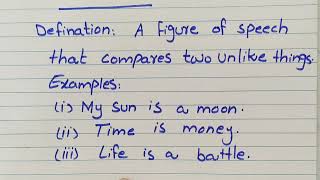 Defination: A figure of speech
that compares two unlike things.
Examples:
(i) My sun is a moon.
(ii) Time is money.
(iii) Life is a battle.